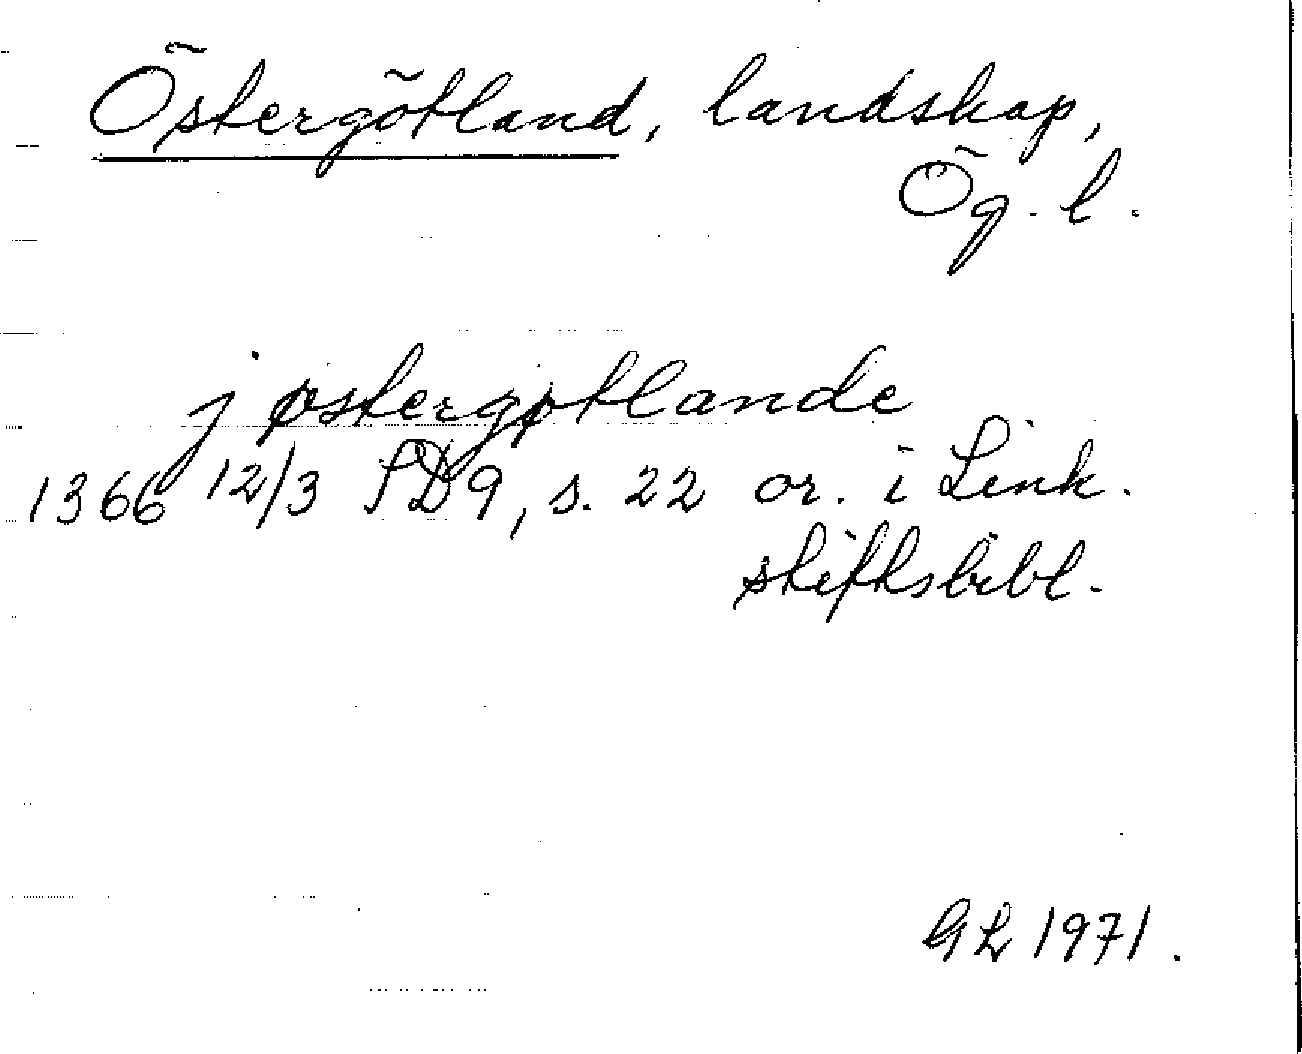 Östergötland, landskap,
Ög. l.
j østergøtlande
1366 12/3 SD9, s. 22 or. i Link.
stiftsbibl.
GL 1971.